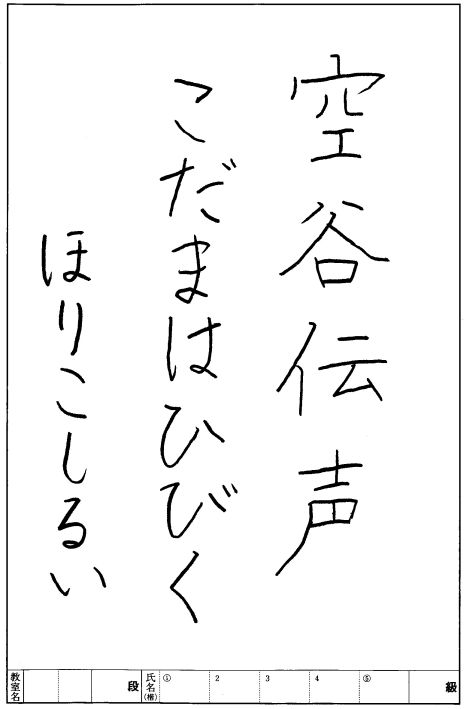 空谷伝声
こだまはひびく
ほりこしるい
教室名 段 氏名(権) ① 2 3 4 ⑤ 級